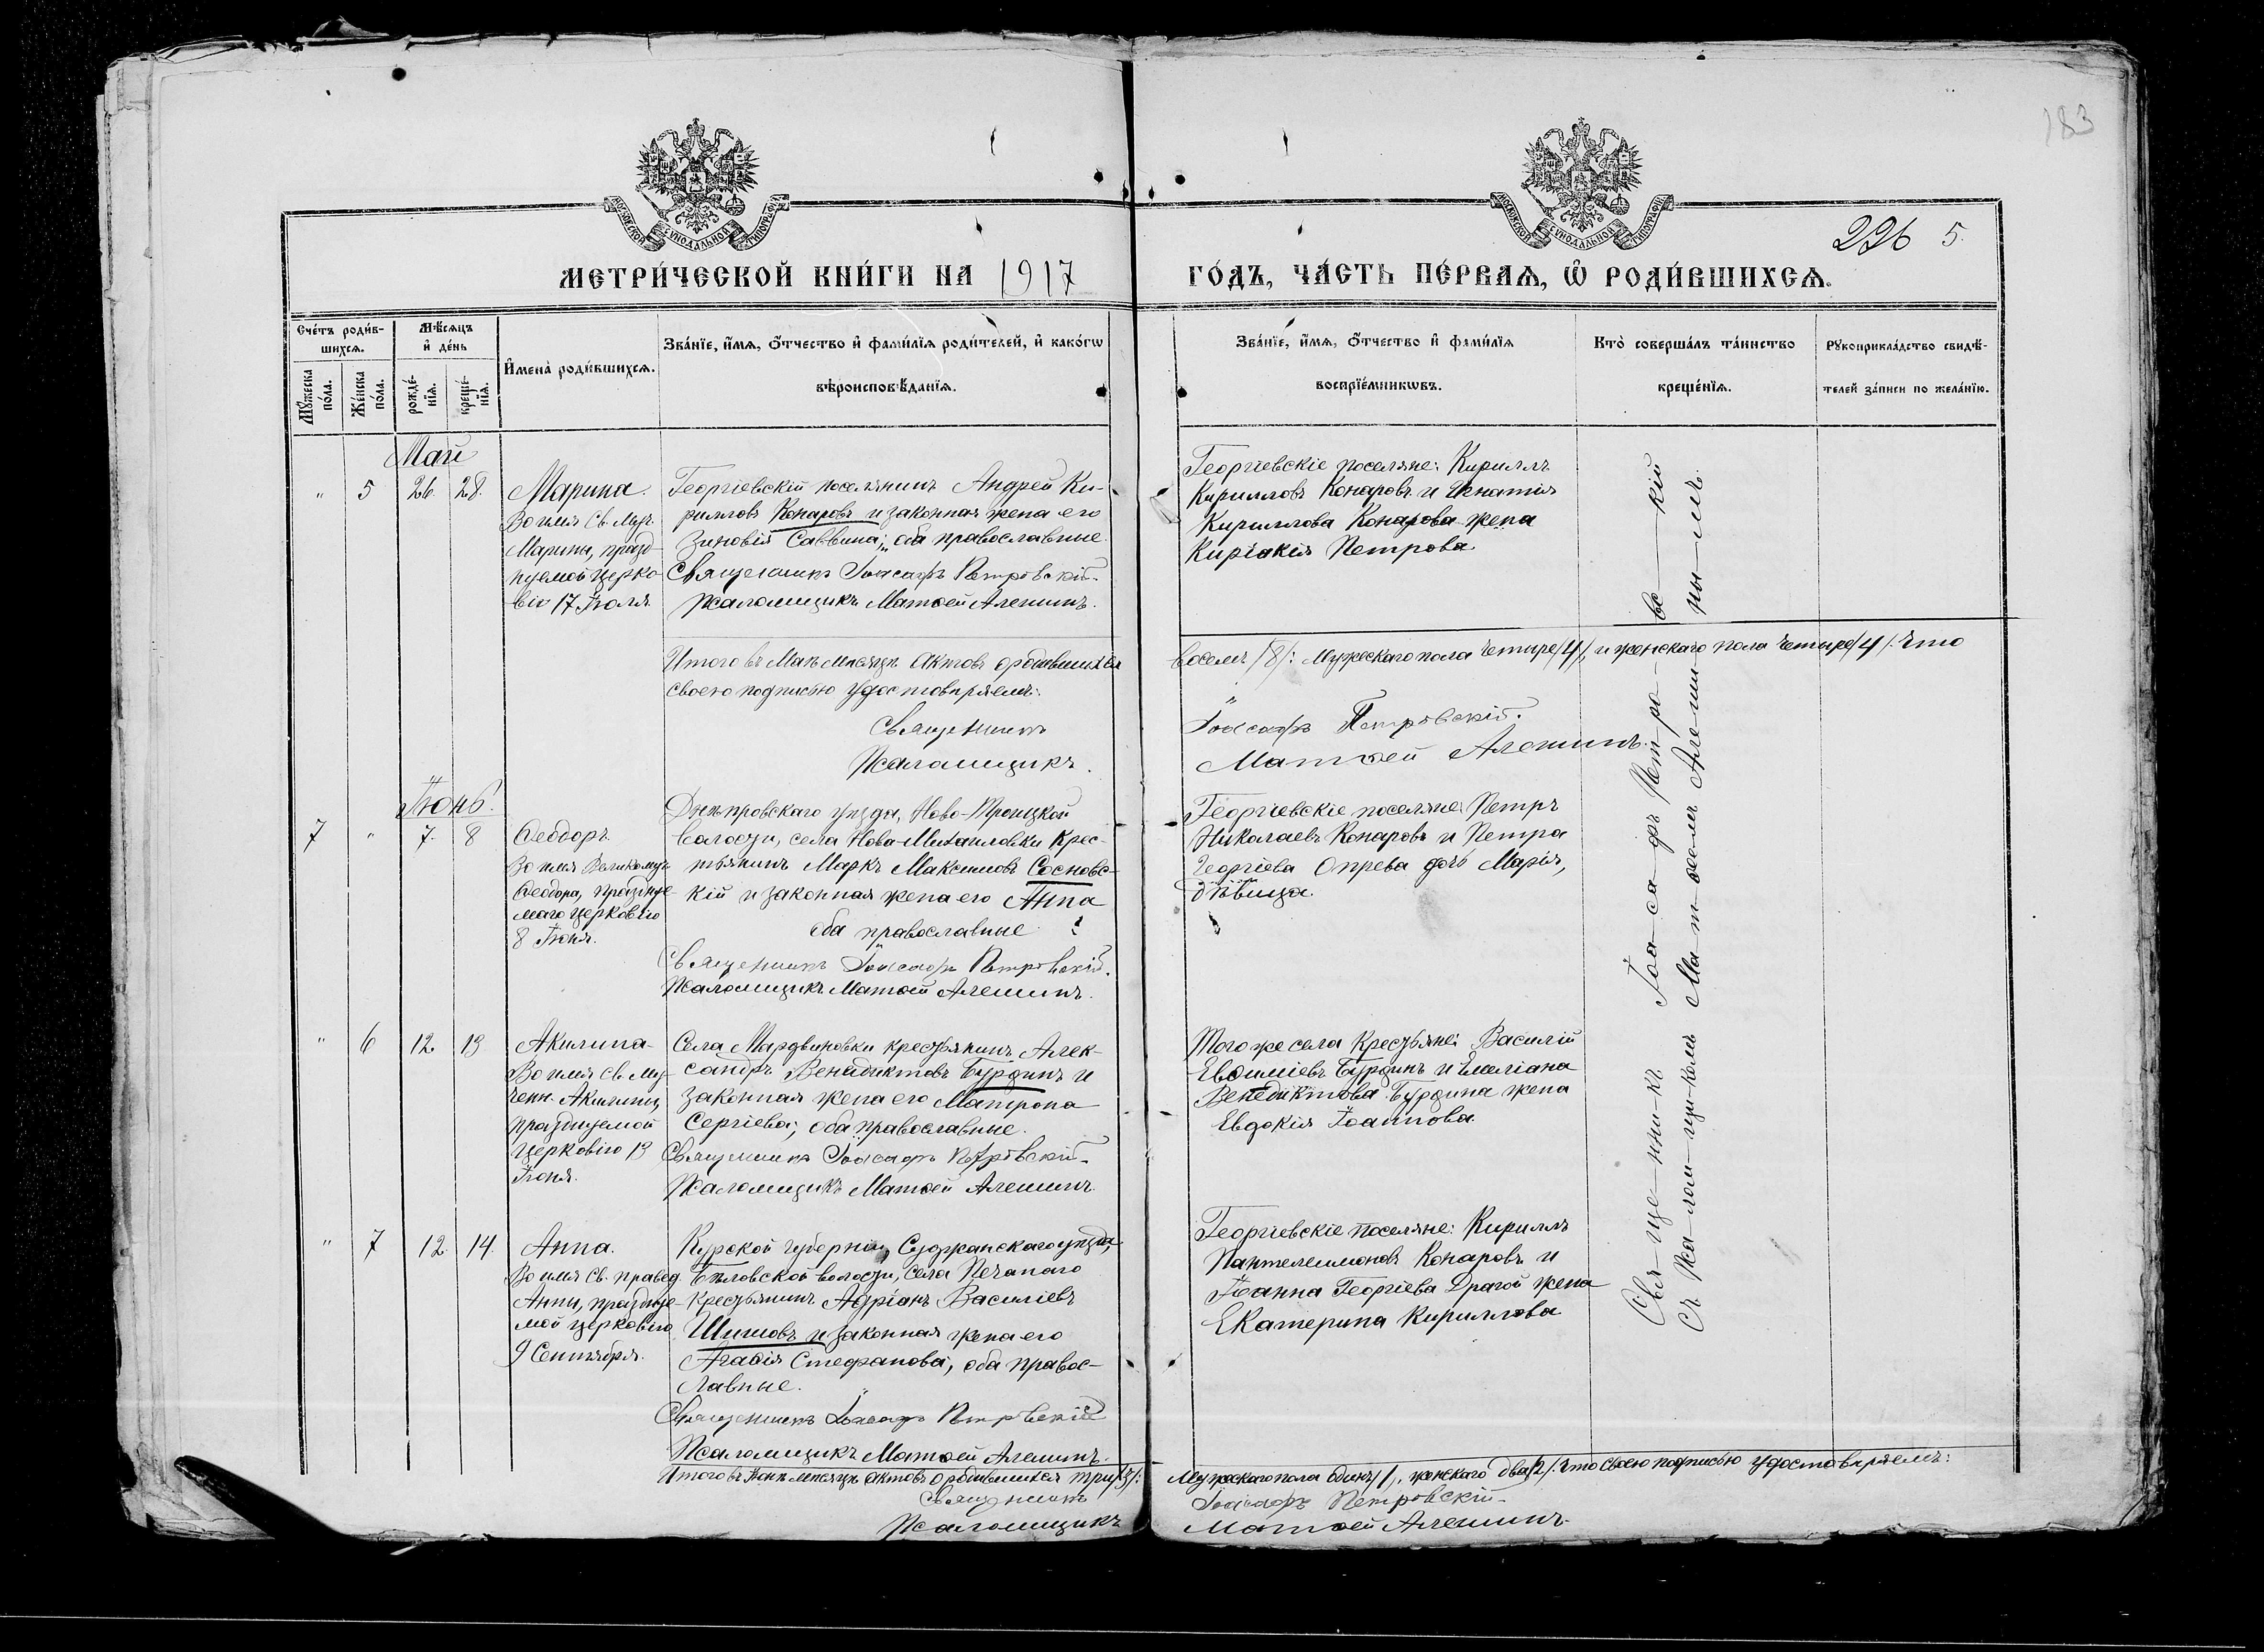 183
МОСКОВСКОЙ СУНОДАЛЬНОЙ ТИПОГРАФІИ
МОСКОВСКОЙ СУНОДАЛЬНОЙ ТИПОГРАФІИ
226 5.
МЕТРИ́ЧЕСКОЙ КНИ́ГИ НА 1917
ГО́ДЪ, ЧА́СТЬ ПЕ́РВАѦ, Ѡ҆ РОДИ́ВШИХСѦ.
Сче́тъ роди́в-
шихсѧ.
Мꙋ́жеска по́ла.
Же́нска по́ла.
Мѣ́сѧцъ
и҆ де́нь
рожде́-
нїѧ.
креще́-
нїѧ.
И҆мена̀ роди́вшихсѧ.
Зва́нїе, и҆́мѧ, ѻ҆́тчество и҆ фами́лїѧ роди́телей, и҆ како́гѡ
вѣроисповѣ́данїѧ.
Зва́нїе, и҆́мѧ, ѻ҆́тчество и҆ фами́лїѧ
воспрїе́мникѡвъ.
Кто̀ соверша́лъ та́инство
креще́нїѧ.
Рꙋкоприкла́дство свидѣ́-
телей за́писи по жела́нїю.
Май
" 5 26. 28.
Марина.
Во имя Св. Муч.
Марины, празд-
нуемой церко-
вію 17 Іюля.
Георгіевскій поселянинъ Андрей Ки-
рилловъ Конаровъ и законная жена его
Зиновія Саввина; оба православные.
Священникъ Іоасафъ Петровскій.
Псаломщикъ Матѳей Алешинъ.
Георгіевскіе поселяне: Кириллъ
Кирилловъ Конаровъ и Игнатія
Кириллова Конарова жена
Киріакія Петрова.
Итого въ Маѣ мѣсяцѣ актовъ о родившихся
восемь /8/: Мужескаго пола четыре /4/, и женскаго пола четыре /4/. Что
своею подписью удостовѣряемъ:
Священникъ
Іоасафъ Петровскій.
Псаломщикъ.
Матѳей Алешинъ.
Іюнь.
7 " 7. 8
Ѳеодоръ.
Во имя Великомуч.
Ѳеодора, празднуе-
маго церковію
8 Іюня.
Днѣпровскаго уѣзда, Ново-Троицкой
волости, села Ново-Михаиловки крес-
тьянинъ Маркъ Максимовъ Сосновс-
кій и законная жена его Анна
оба православные.
Священникъ Іоасафъ Петровскій.
Псаломщикъ Матѳей Алешинъ.
Георгіевскіе поселяне: Петръ
Николаевъ Конаровъ и Петра
Георгіева Опрева дочь Марія,
дѣвица.
" 6 12. 13
Акилина
Во имя Св. Му-
чен. Акилины,
празднуемой
церковію 13
Іюня.
Села Мардвиновки крестьянинъ Алек-
сандръ Венедиктовъ Бурдинъ и
законная жена его Матрона
Сергіева; оба православные.
Священникъ Іоасафъ Петровскій
Псаломщикъ Матѳей Алешинъ.
Того же села крестьяне: Василій
Евѳиміевъ Бурдинъ и Емиліана
Венедиктова Бурдина жена
Евдокія Іоаннова.
" 7 12. 14.
Анна.
Во имя Св. правед.
Анны, праздуе-
мой церковію
9 Сентября.
Курской губерніи, Суджанскаго уѣзда,
Бѣловской волости, села Печанаго
крестьянинъ Адріанъ Василіевъ
Шишовъ и законная жена его
Агаѳія Стефанова; оба правос-
лавные.
Священникъ Іоасафъ Петровскій
Псаломщикъ Матѳей Алешинъ.
Георгіевскіе поселяне: Кириллъ
Пантелеимоновъ Конаровъ и
Іоанна Георгіева Драгой жена
Екатерина Кириллова
Свя-ще-нни-къ Іоа-са-фъ Пет-ро-вс-кій
Съ Пса-лом-щи-комъ Ма-т-ѳеемъ Але-ши-ны-мъ.
Итого въ Іюнѣ мѣсяцѣ актовъ о родившихся три /3/:
Мужескаго пола одинъ /1/, женскаго два /2/. Что своею подписью удостовѣряемъ:
Священникъ
Іоасафъ Петровскій.
Псаломщикъ
Матѳей Алешинъ.